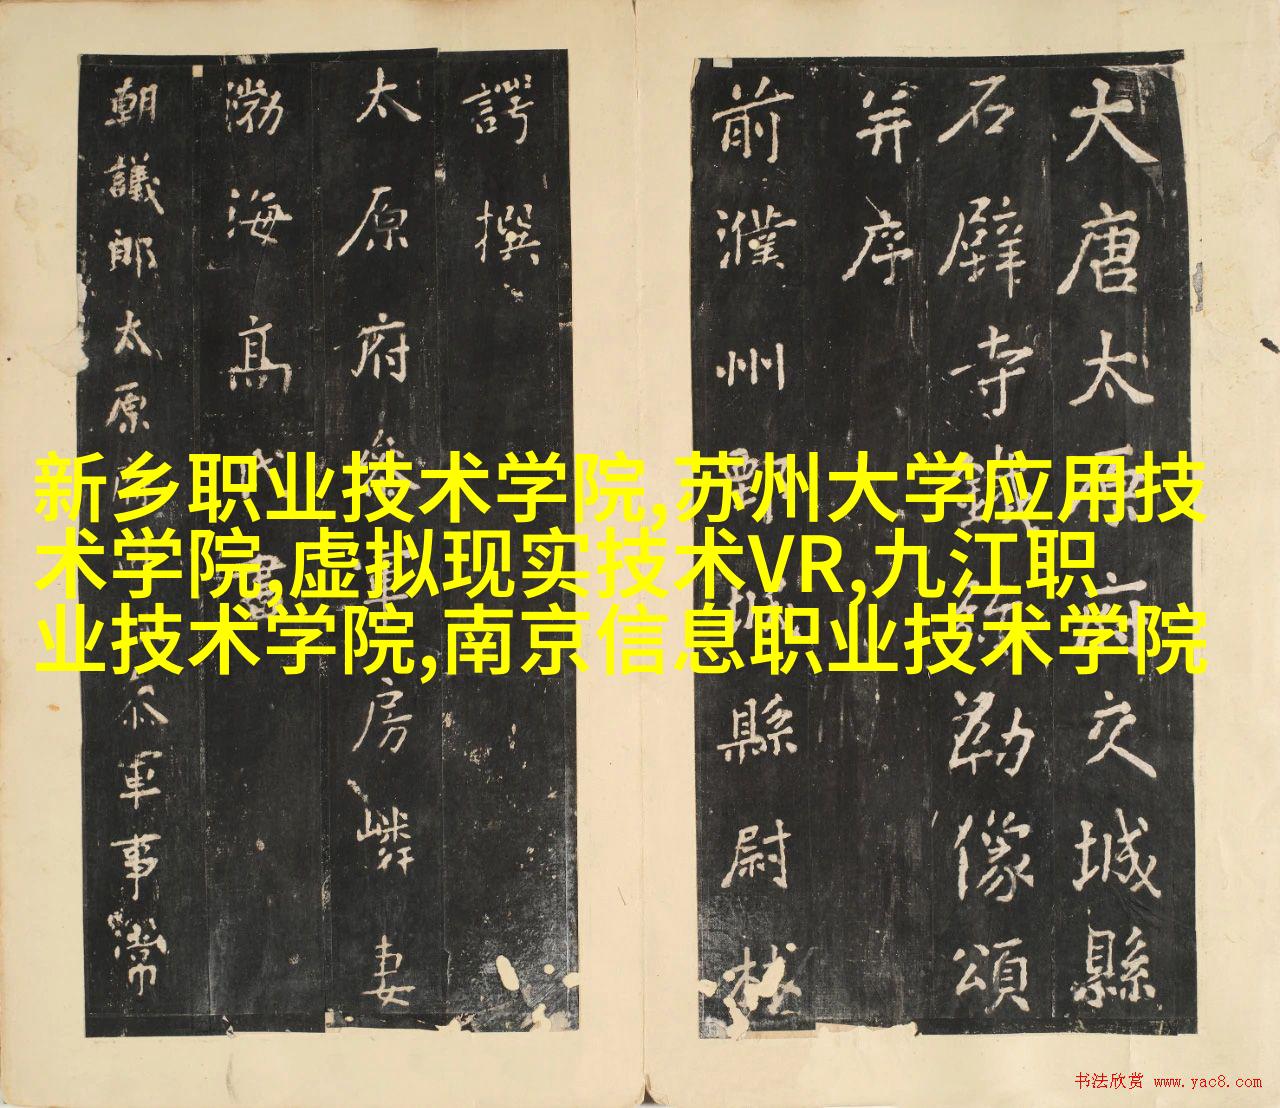 新乡职业技术学院,苏州大学应用技
术学院,虚拟现实技术VR,九江职
业技术学院,南京信息职业技术学院
大唐太原府交城縣
石壁寺鐵弥勒像頌
并序
前濮州鄄城縣尉林
諤撰
太原府参軍房嶙妻
渤海高氏書
朝議郎太原 参軍事常
书法欣赏 www.yac8.com